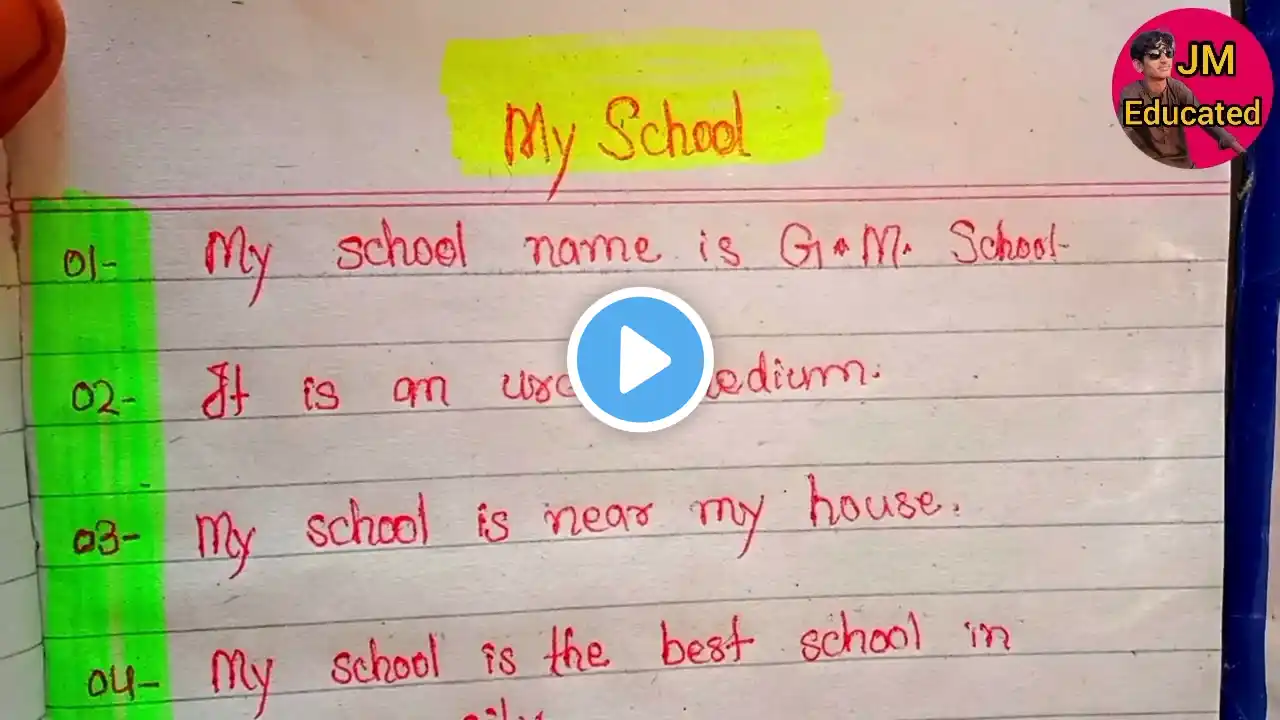 JM
Educated
My School
01- My school name is G.M. School-
02- It is an medium.
03- My school is near my house.
04- My school is the best school in